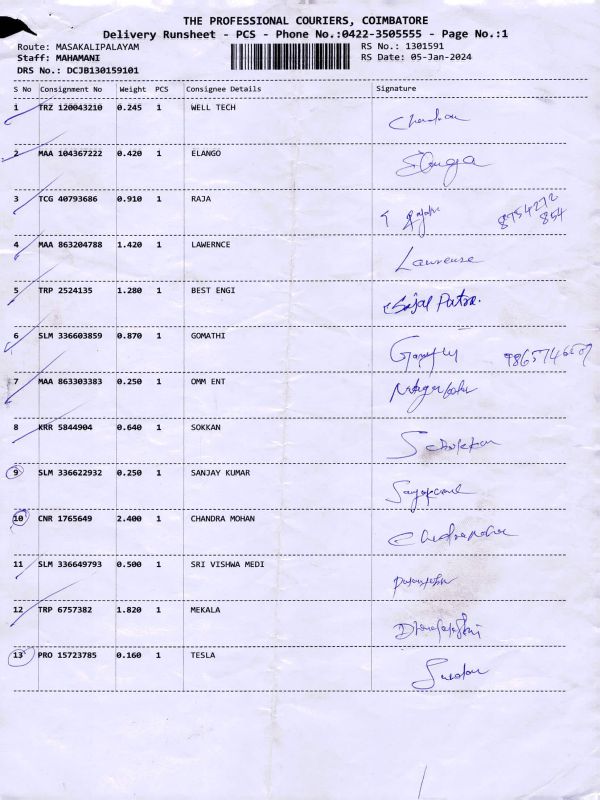 THE PROFESSIONAL COURIERS, COIMBATORE
Delivery Runsheet - PCS - Phone No.:0422-3505555 - Page No.:1
Route: MASAKALIPALAYAM RS No.: 1301591
Staff: MAHAMANI RS Date: 05-Jan-2024
DRS No.: DCJB130159101
S No Consignment No Weight PCS Consignee Details Signature
1 TRZ 120043210 0.245 1 WELL TECH
2 MAA 104367222 0.420 1 ELANGO
3 TCG 40793686 0.910 1 RAJA 8754272
854
4 MAA 863204788 1.420 1 LAWERNCE Lawrense
5 TRP 2524135 1.280 1 BEST ENGI Sajal Patra.
6 SLM 336603859 0.870 1 GOMATHI
7 MAA 863303383 0.250 1 OMM ENT
8 KRR 5844904 0.640 1 SOKKAN Sokkan
9 SLM 336622932 0.250 1 SANJAY KUMAR
10 CNR 1765649 2.400 1 CHANDRA MOHAN
11 SLM 336649793 0.500 1 SRI VISHWA MEDI
12 TRP 6757382 1.820 1 MEKALA
13 PRO 15723785 0.160 1 TESLA